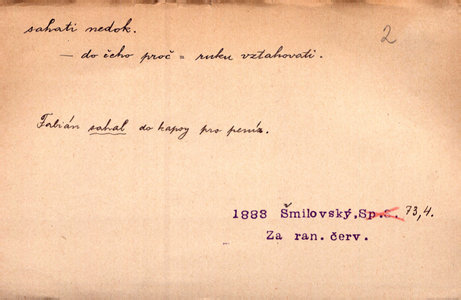 sahati nedok.
2
— do čeho proč = ruku vztahovati.
Fabián sahal do kapsy pro peníz.
1883 Šmilovský, Sp. 73,4.
Za ran. červ.